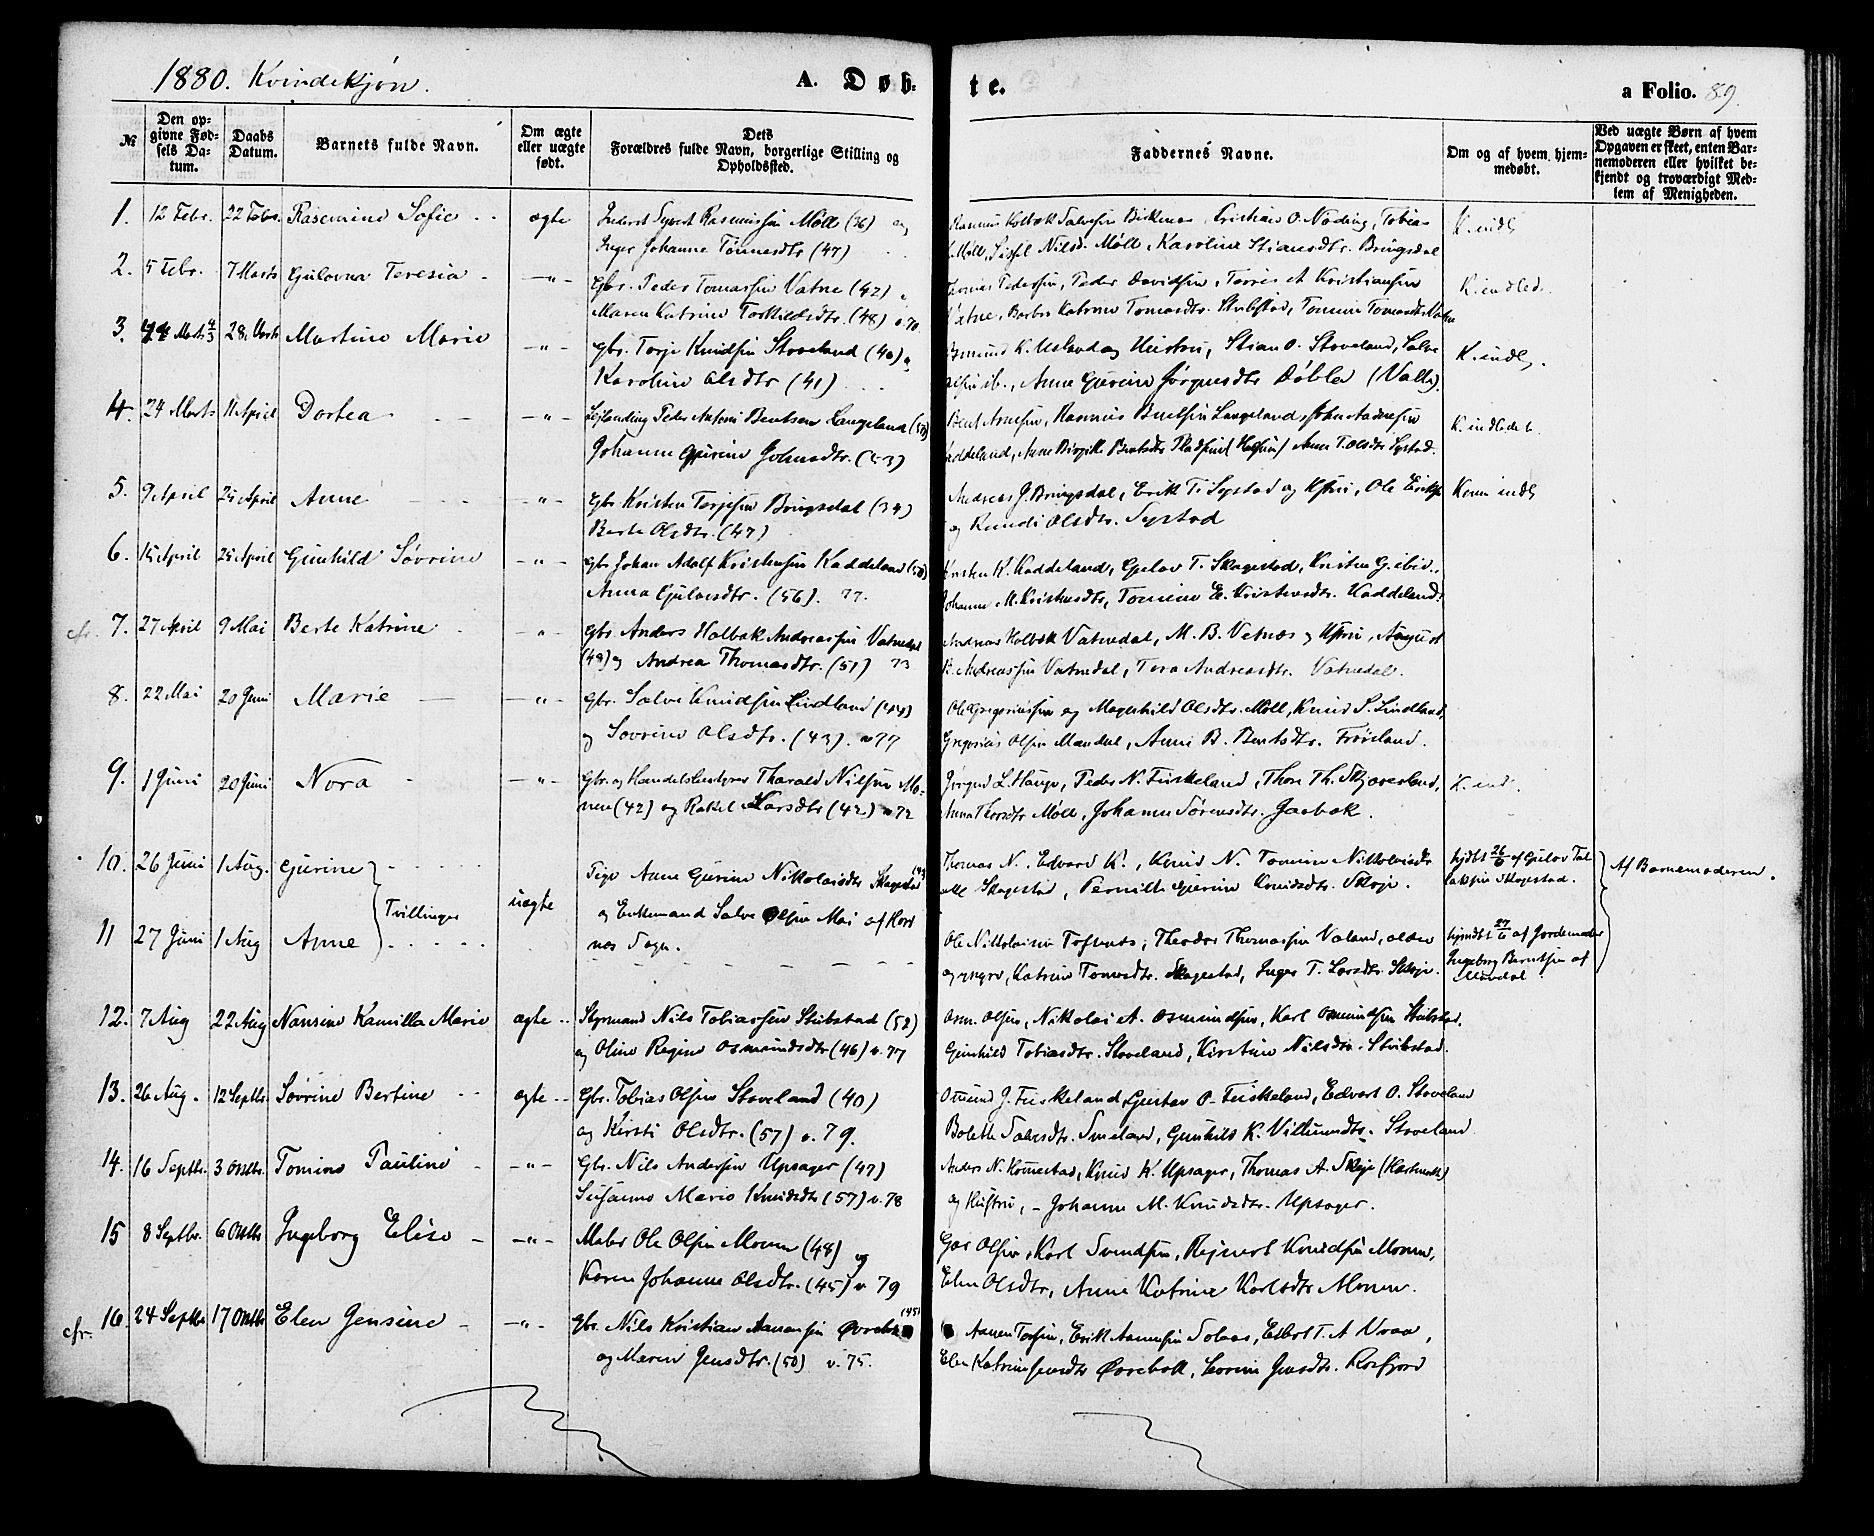 1880. Kvindekjøn.
A. Døb-
te.
a Folio. 89.
№
Den op-
givne Fød-
sels Da-
tum.
Daabs
Datum.
Barnets fulde Navn.
Om ægte
eller uægte
født.
Dets
Forældres fulde Navn, borgerlige Stilling og
Opholdssted.
Faddernes Navne.
Om og af hvem hjem-
medøbt.
Ved uægte Børn af hvem
Opgaven er skeet, enten Bar-
nemoderen eller hvilket be-
kjendt og troværdigt Med-
lem af Menigheden.
1. 12 Febr. 22 Febr. Rasmine Sofie ægte Sivert Rasmussen Møll (36) og
Inger Johanne Tønnesdtr (47)
Rasmus Holbek Salvesen Birkenes, Kristian O. Nøding, Tobias
Møll, Sissel Nilsd. Møll, Karoline Stiansdtr. Bringsdal
K. indl
2. 5 Febr. 7 Marts Gulovna Teresia - -"- Gbr. Peder Tomassen Vatne (42) &
Maren Katrine Torkildsdtr. (48) v. 70.
Tomas Pedersen, Peder Davidsen, Torris A Kristiansen
Vatne, Barbro Katrine Tomasdtr. Stubstad, Tomine Tomasdtr Vatne
K. indled.
3. 4/3 28 Marts Martine Marie -"- Gbr. Terje Knudsen Stoveland (40) &
Karoline Olsdtr (41)
Osmund K. Usland og Hustru, Stian O. Stoveland, Salve
Olsen ib., Anne Gurine Jørgensdtr Døble (Valle).
K. indl.
4. 24 Marts 11 April Dortea -"- Leilending Peder Antoni Bentsen Langeland (50)
Johanne Gurine Johnsdtr. (53)
Bent Arnesen, Rasmus Bentsen Langeland, John Aadnesen
Kaddeland, Anne Birgitte Bentsdtr Anne T. Olsdtr Systad.
K. indledet.
5. 9 April 25 April Anne -"- Gbr Kristen Terjesen Bringsdal (34)
Berte Olsdtr. (47)
Andreas J. Bringsdal, Erik T. Systad og Hstru, Ole Eriks.
og Randi Olsdtr. Systad
Konen indl
6. 15 April 25 April Gunhild Søvrine -"- Gbr Johan Adolf Kristensen Kaddeland (50)
Anna Gulovsdtr. (56). 77.
Kristen K. Kaddeland, Gulov T. Skagestad, Kristen G. ibid.,
Johanne M. Kristensdtr, Tomine E. Kristensdtr. Kaddeland.
cfr. 7. 27 April 9 Mai Berte Katrine -"- Gbr. Anders Holbæk Andreassen Vatnedal
(49) og Andrea Thomasdtr. (51) 73
Andreas Holbæk Vatnedal, M. B. Vetnes og Hstru, August
K. Andreassen Vatnedal, Tora Andreasdtr. Vatnedal.
8. 22 Mai 20 Juni Marie -"- Gbr. Salve Knudsen Lindland (44)
og Søvrine Olsdtr. (43). v 77
Ole Gregoriussen og Magnhild Olsdtr. Møll, Knud S. Lindland,
Gregorius Olsen Mandal, Anne B. Bentsdtr. Frøiland.
9. 1 Juni 20 Juni Nora -"- Gbr. og Handelsbestyrer Tharald Nilsen Mo-
nen (42) og Rakel Larsdtr (42) v 72
Jørgen L. Hauge, Peder N. Fuskeland, Thor Th. Skjøvesland,
Anna Thorsdtr Møll, Johanne Sørensdtr. Jaabæk.
K. ind.
10. 26 Juni 1 Aug. Gurine
Tvillinger
uægte
Pige Anne Gurine Nikolaisdtr Skagestad
og Enkemand Salve Olsen Moi af Hort
nes Sogn.
Thomas N., Edvard K., Knud N. Tomine Nikolaisdtr
alle Skagestad, Pernille Gurine Knudsdtr. Skoje.
hjdbt 26/6 af Gulov Tal
laksen Skagestad.
Af Barnemoderen.
11 27 Juni 1 Aug Anne
Ole Nikolaisen Tofsnes, Theodor Thomassen Valand, eldre
og yngre, Katrine Tomasdtr. Skagestad, Inger T. Larsdtr. Skoje.
hjmdbt 27/6 af Jordemoder
Ingeborg Berntsen af
Mandal.
12. 7 Aug 22 Aug Nansine Kamilla Marie ægte Styrmand Nils Tobiassen Stubstad (52)
og Oline Regine Osmundsdtr (46) v. 77
Osm. Olsen, Nikolai A. Osmundsen, Karl Osmundsen Stubstad.
Gunhild Tobiasdtr. Stoveland, Kirstine Nilsdtr. Stubstad.
13. 26 Aug. 12 Septbr. Søvrine Bertine ægte Gbr. Tobias Olsen Stoveland (40)
og Kirsti Olsdtr. (57) v. 79.
Osmund J. Fuskeland, Gustav O. Fuskeland, Edvart O. Stoveland
Bolette Salvesdtr. Smeland, Gunhild K. Villumsdtr. Stoveland
14. 16 Septbr. 3 Octbr. Tomine Pauline - -"- Gbr. Nils Andersen Upsager (47)
Susanne Marie Knudsdtr (57) v. 78
Anders N. Homestad, Knud K. Upsager, Thomas A. Skoje (Hartmark)
og Hustru, - Johanne M. Knudsdtr. Upsager.
15 8 Septbr. 6 Octbr Ingeborg Elise - -"- Maler Ole Olsen Monen (48) og
Karen Johanne Olsdtr. (45) v 79
Olsen, Karl Svendsen, Rejnert Knudsen Monen,
Elen Olsdtr, Anne Katrine Karlsdtr Monen.
cfr. 16. 24 Septbr 17 Octbr Elen Gensine - -"- Gbr. Nils Kristian Aanensen Øvrebø (45)
og Maren Jensdtr. (50) v. 75.
Aanen Torsen, Erik Aanensen Solaas, Esbert T. A Vraa,
Elen Katrine Jensdtr Øvreboll, Lovine Jensdtr. Rosfjord